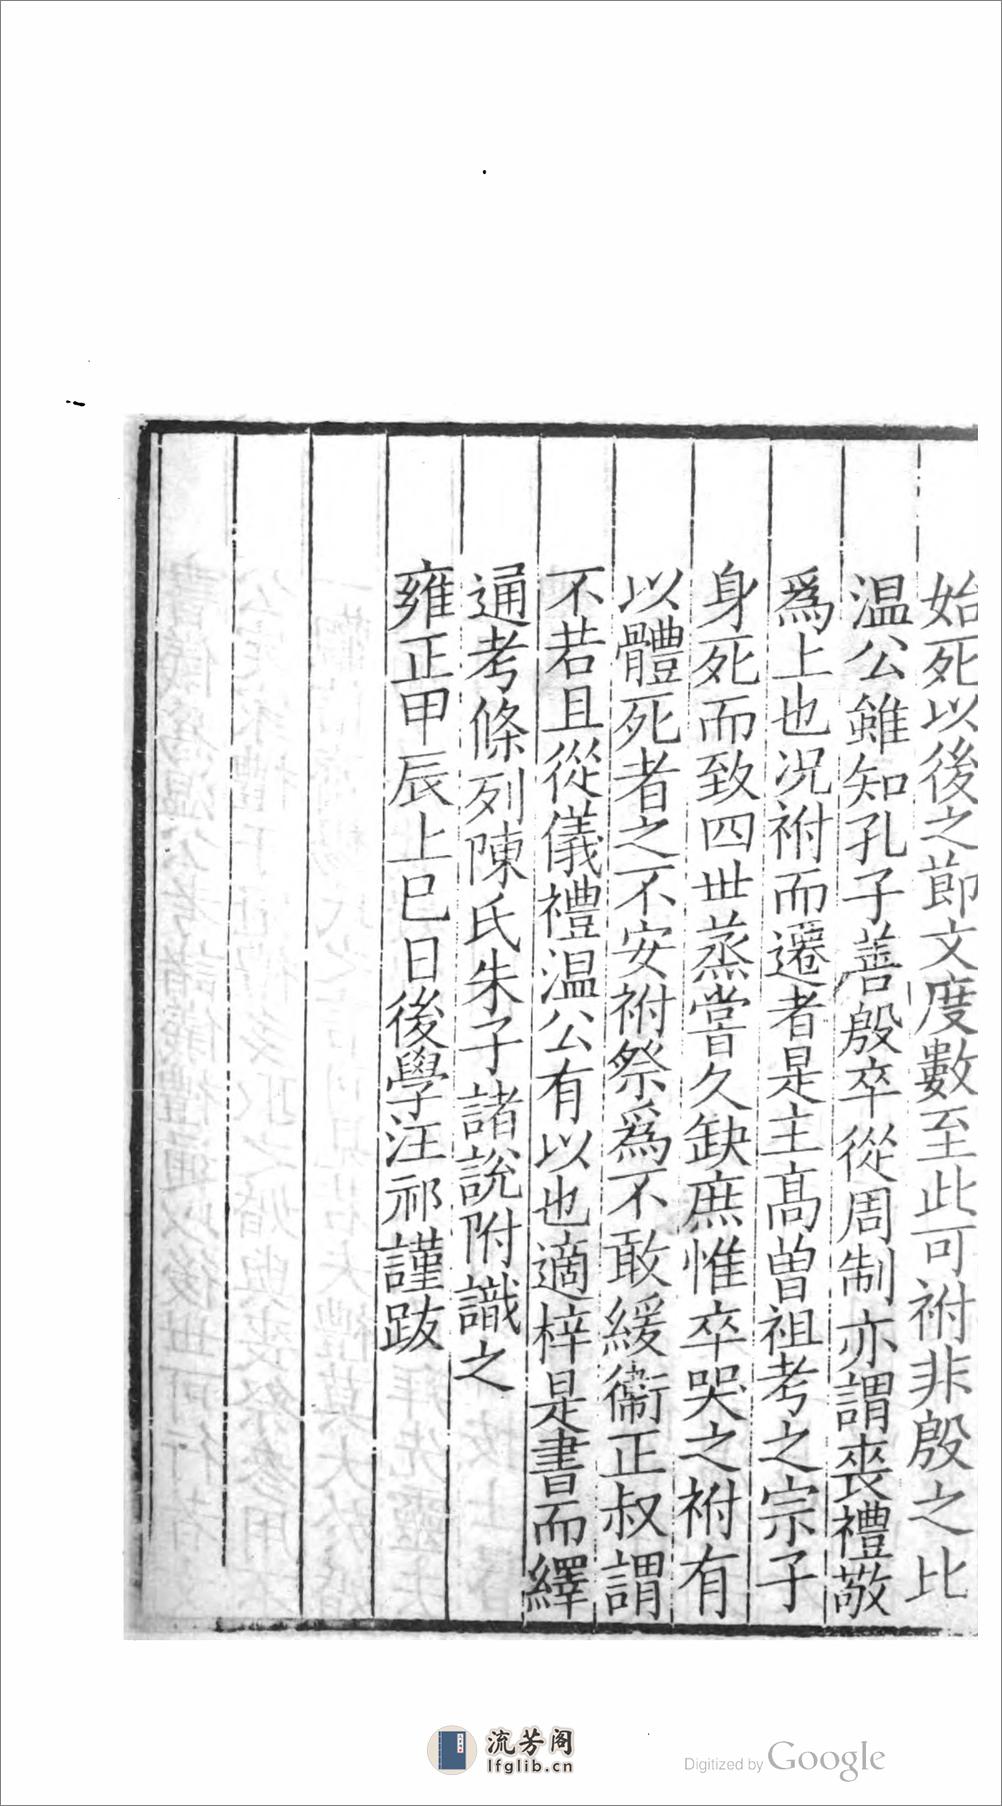 始死以後之節文度數至此可祔非殷之比
温公雖知孔子善殷卒從周制亦謂喪禮敬
爲上也况祔而遷者是主髙曾祖考之宗子
身死而致四世蒸嘗久缺庶惟卒哭之祔有
以體死者之不安祔祭爲不敢緩衞正叔謂
不若且從儀禮温公有以也適梓是書而繹
通考條列陳氏朱子諸說附識之
雍正甲辰上巳日後學汪祁謹跋
流芳阁
lfglib.cn
Digitized by Google